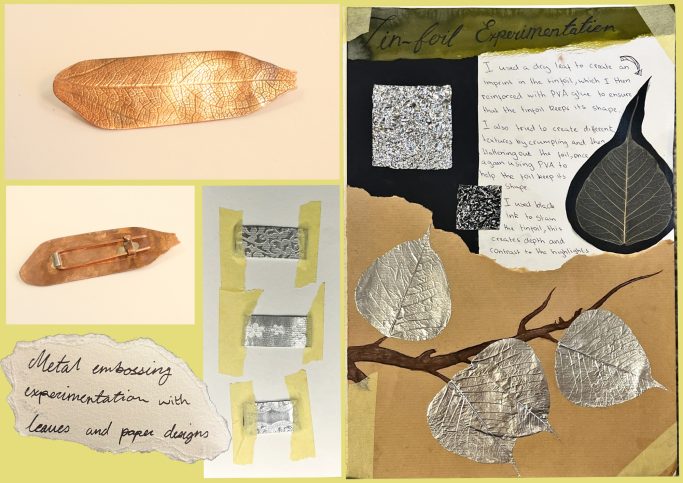 Metal embossing
experimentation with
leaves and paper designs
Tin-foil Experimentation
I used a dry leaf to create an
imprint in the tinfoil, which I then
reinforced with PVA glue to ensure
that the tinfoil keeps its shape.
I also tried to create different
textures by crumpling and then
flattening out the foil, once
again using PVA to
help the foil keep its
shape.
I used black
ink to stain
the tinfoil, this
creates depth and
contrast to the highlights